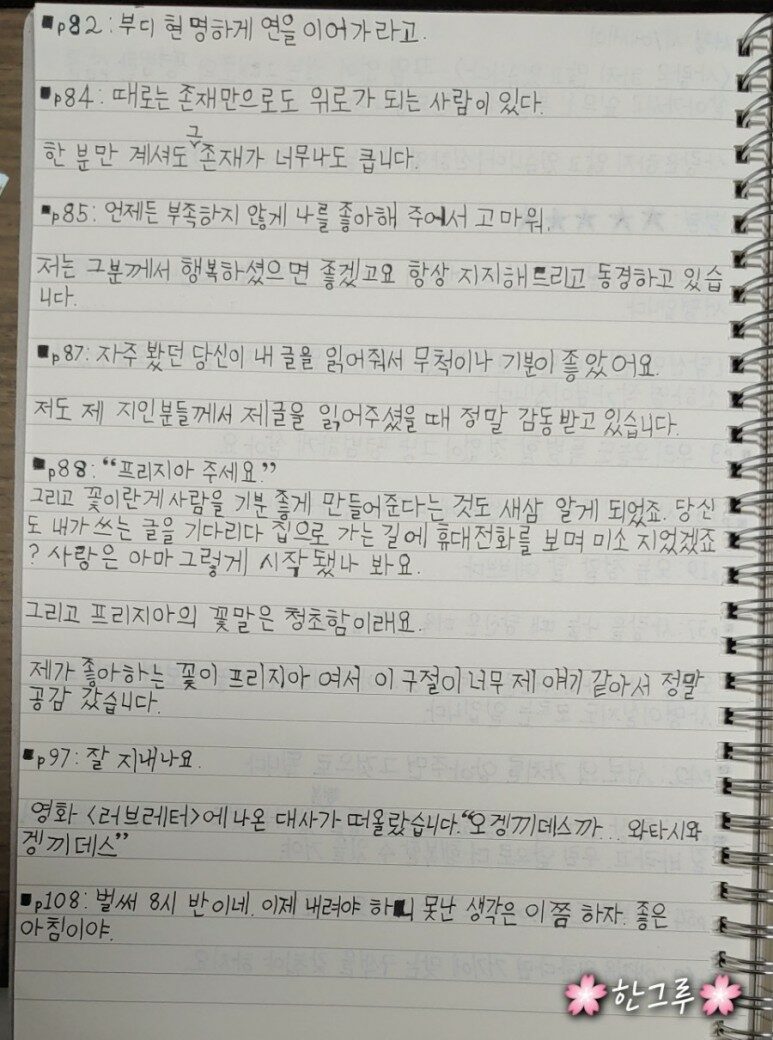 ■p82: 부디 현명하게 연을 이어가라고.
■p84: 때로는 존재만으로도 위로가 되는 사람이 있다.
한 분만 계셔도 그 존재가 너무나도 큽니다.
■p85: 언제든 부족하지 않게 나를 좋아해 주어서 고마워.
저는 그분께서 행복하셨으면 좋겠고요 항상 지지해 드리고 동경하고 있습
니다.
■p87: 자주 봤던 당신이 내 글을 읽어줘서 무척이나 기분이 좋았어요.
저도 제 지인분들께서 제글을 읽어주셨을 때 정말 감동받고 있습니다.
■p88: “프리지아 주세요.”
그리고 꽃이란게 사람을 기분 좋게 만들어준다는 것도 새삼 알게 되었죠. 당신
도 내가 쓰는 글을 기다리다 집으로 가는 길에 휴대전화를 보며 미소 지었겠죠
? 사랑은 아마 그렇게 시작됐나 봐요.
그리고 프리지아의 꽃말은 청초함이래요.
제가 좋아하는 꽃이 프리지아 여서 이 구절이 너무 제 얘기 같아서 정말
공감 갔습니다.
■p97: 잘 지내나요.
영화 <러브레터>에 나온 대사가 떠올랐습니다. “오겡끼데스까... 와타시와
겡끼데스”
■p108: 벌써 8시 반이네. 이제 내려야 하니 못난 생각은 이쯤 하자. 좋은
아침이야.
🌸한그루🌸